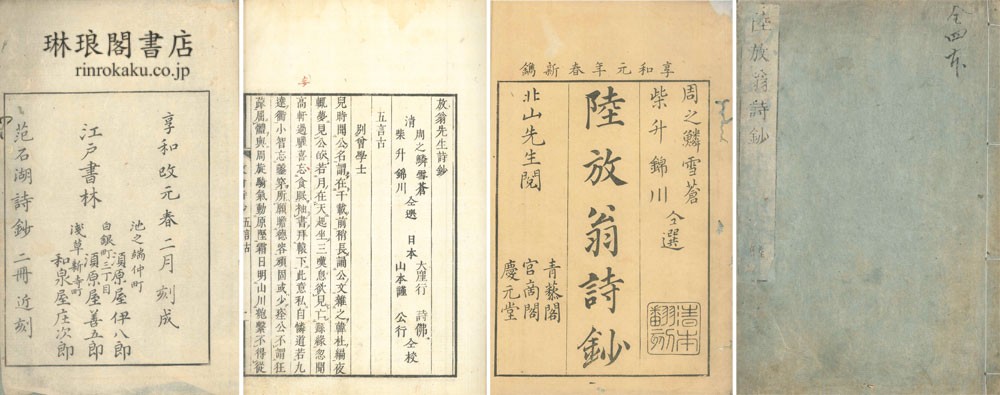 全四本
陸放翁詩鈔
享和元年春新鐫
周之鱗雪蒼
柴升錦川
仝選
陸放翁詩鈔
北山先生閲
青藜閣
宮商閣
慶元堂
清本
翻刻
放翁先生詩鈔
清
周之鱗雪蒼
柴升錦川
仝選
日本
大窪行 詩佛
山本謹 公行
仝校
五言古
別曾學士
兒時聞公名謂在千載前稍長誦公文雜之韓杜編夜
輒夢見公皎若月在天起坐三嘆息欲見亡繇緣忽聞
高軒過驩喜忘食眠袖書拜轅下此意私自憐道若九
逵衢小智妄鑿穿所願瞻德容頑固或少痊公不謂狂
疎屈體與周旋騎氣動原隰霜日明山川匏繫不得從
享和改元春二月刻成
江戸書林
池之端仲町
須原屋伊八郎
白銀町三丁目
須原屋善五郎
淺草新寺町
和泉屋庄次郎
范石湖詩鈔 二冊 近刻
琳琅閣書店
rinrokaku.co.jp